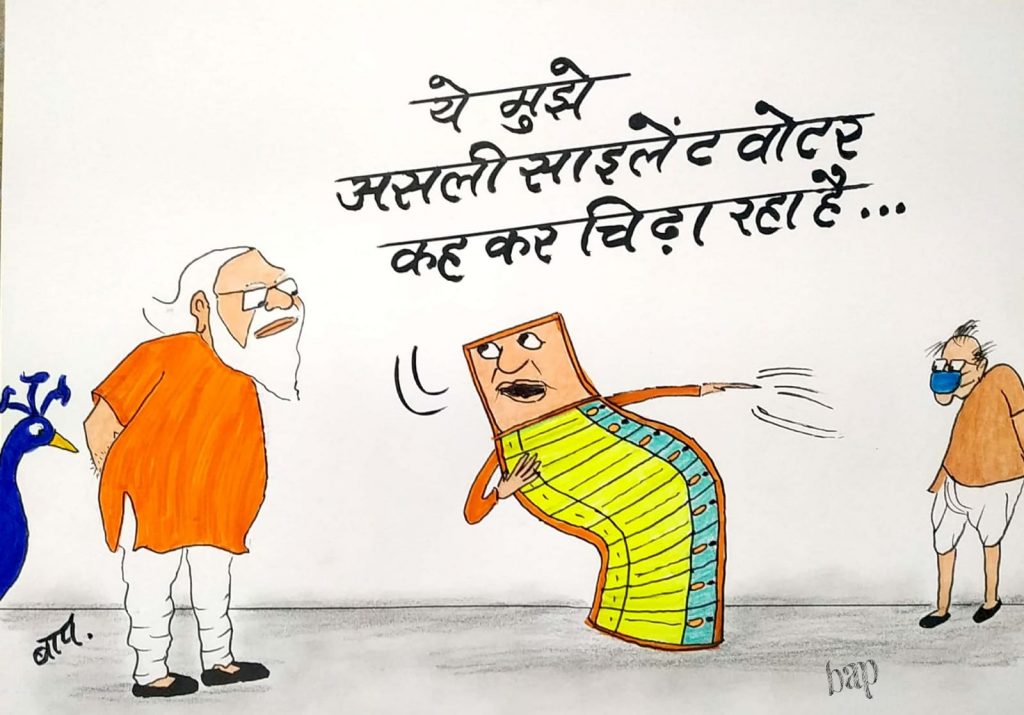 ये मुझे
असली साइलेंट वोटर
कह कर चिढ़ा रहा है...
बाप.
bap